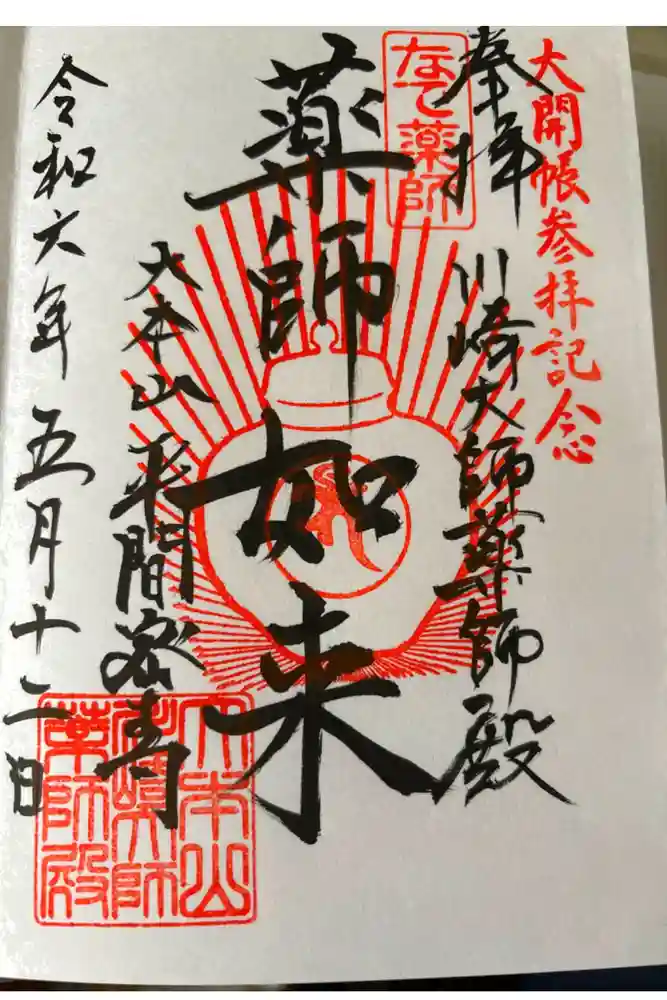 大開帳参拝記念
奉拝
川崎大師薬師殿
なで薬師
薬師如来
大本山 平間寺
令和六年五月十二日
大本山
川崎大師
薬師殿